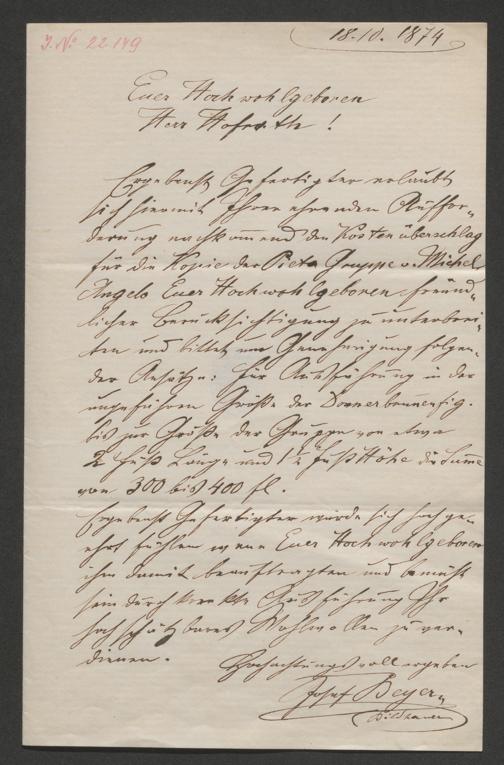 J. No 22149
18.10. 1874
Euer Hochwohlgeboren
Herr Hofrath!
Ergebenst Gefertigter erlaubt
sich hiermit Ihrer ehrenden Auffor-
derung nachkommend den Kostenüberschlag
für die Kopie der Pieta Gruppe v. Michel
Angelo Euer Hochwohlgeboren freund-
licher Berücksichtigung zu unterbrei-
ten und bittet um Genehmigung folgen-
der Ansätze: Für Ausführung in der
ungefähren Größe der Donnerbrunnenfig.
bis zur Größe der Gruppe von etwa
2 Fuß Länge und 1½ Fuß Höhe die Summe
von 300 bis 400 fl.
Ergebenst Gefertigter würde sich hochge-
ehrt fühlen wenn Euer Hochwohlgeboren
ihn damit beauftragten und bemüht
sein durch korrekte Ausführung Ihr
hochschätzbares Wohlwollen zu ver-
dienen.
Hochachtungsvoll ergeben
Josef Beyer
Bildhauer